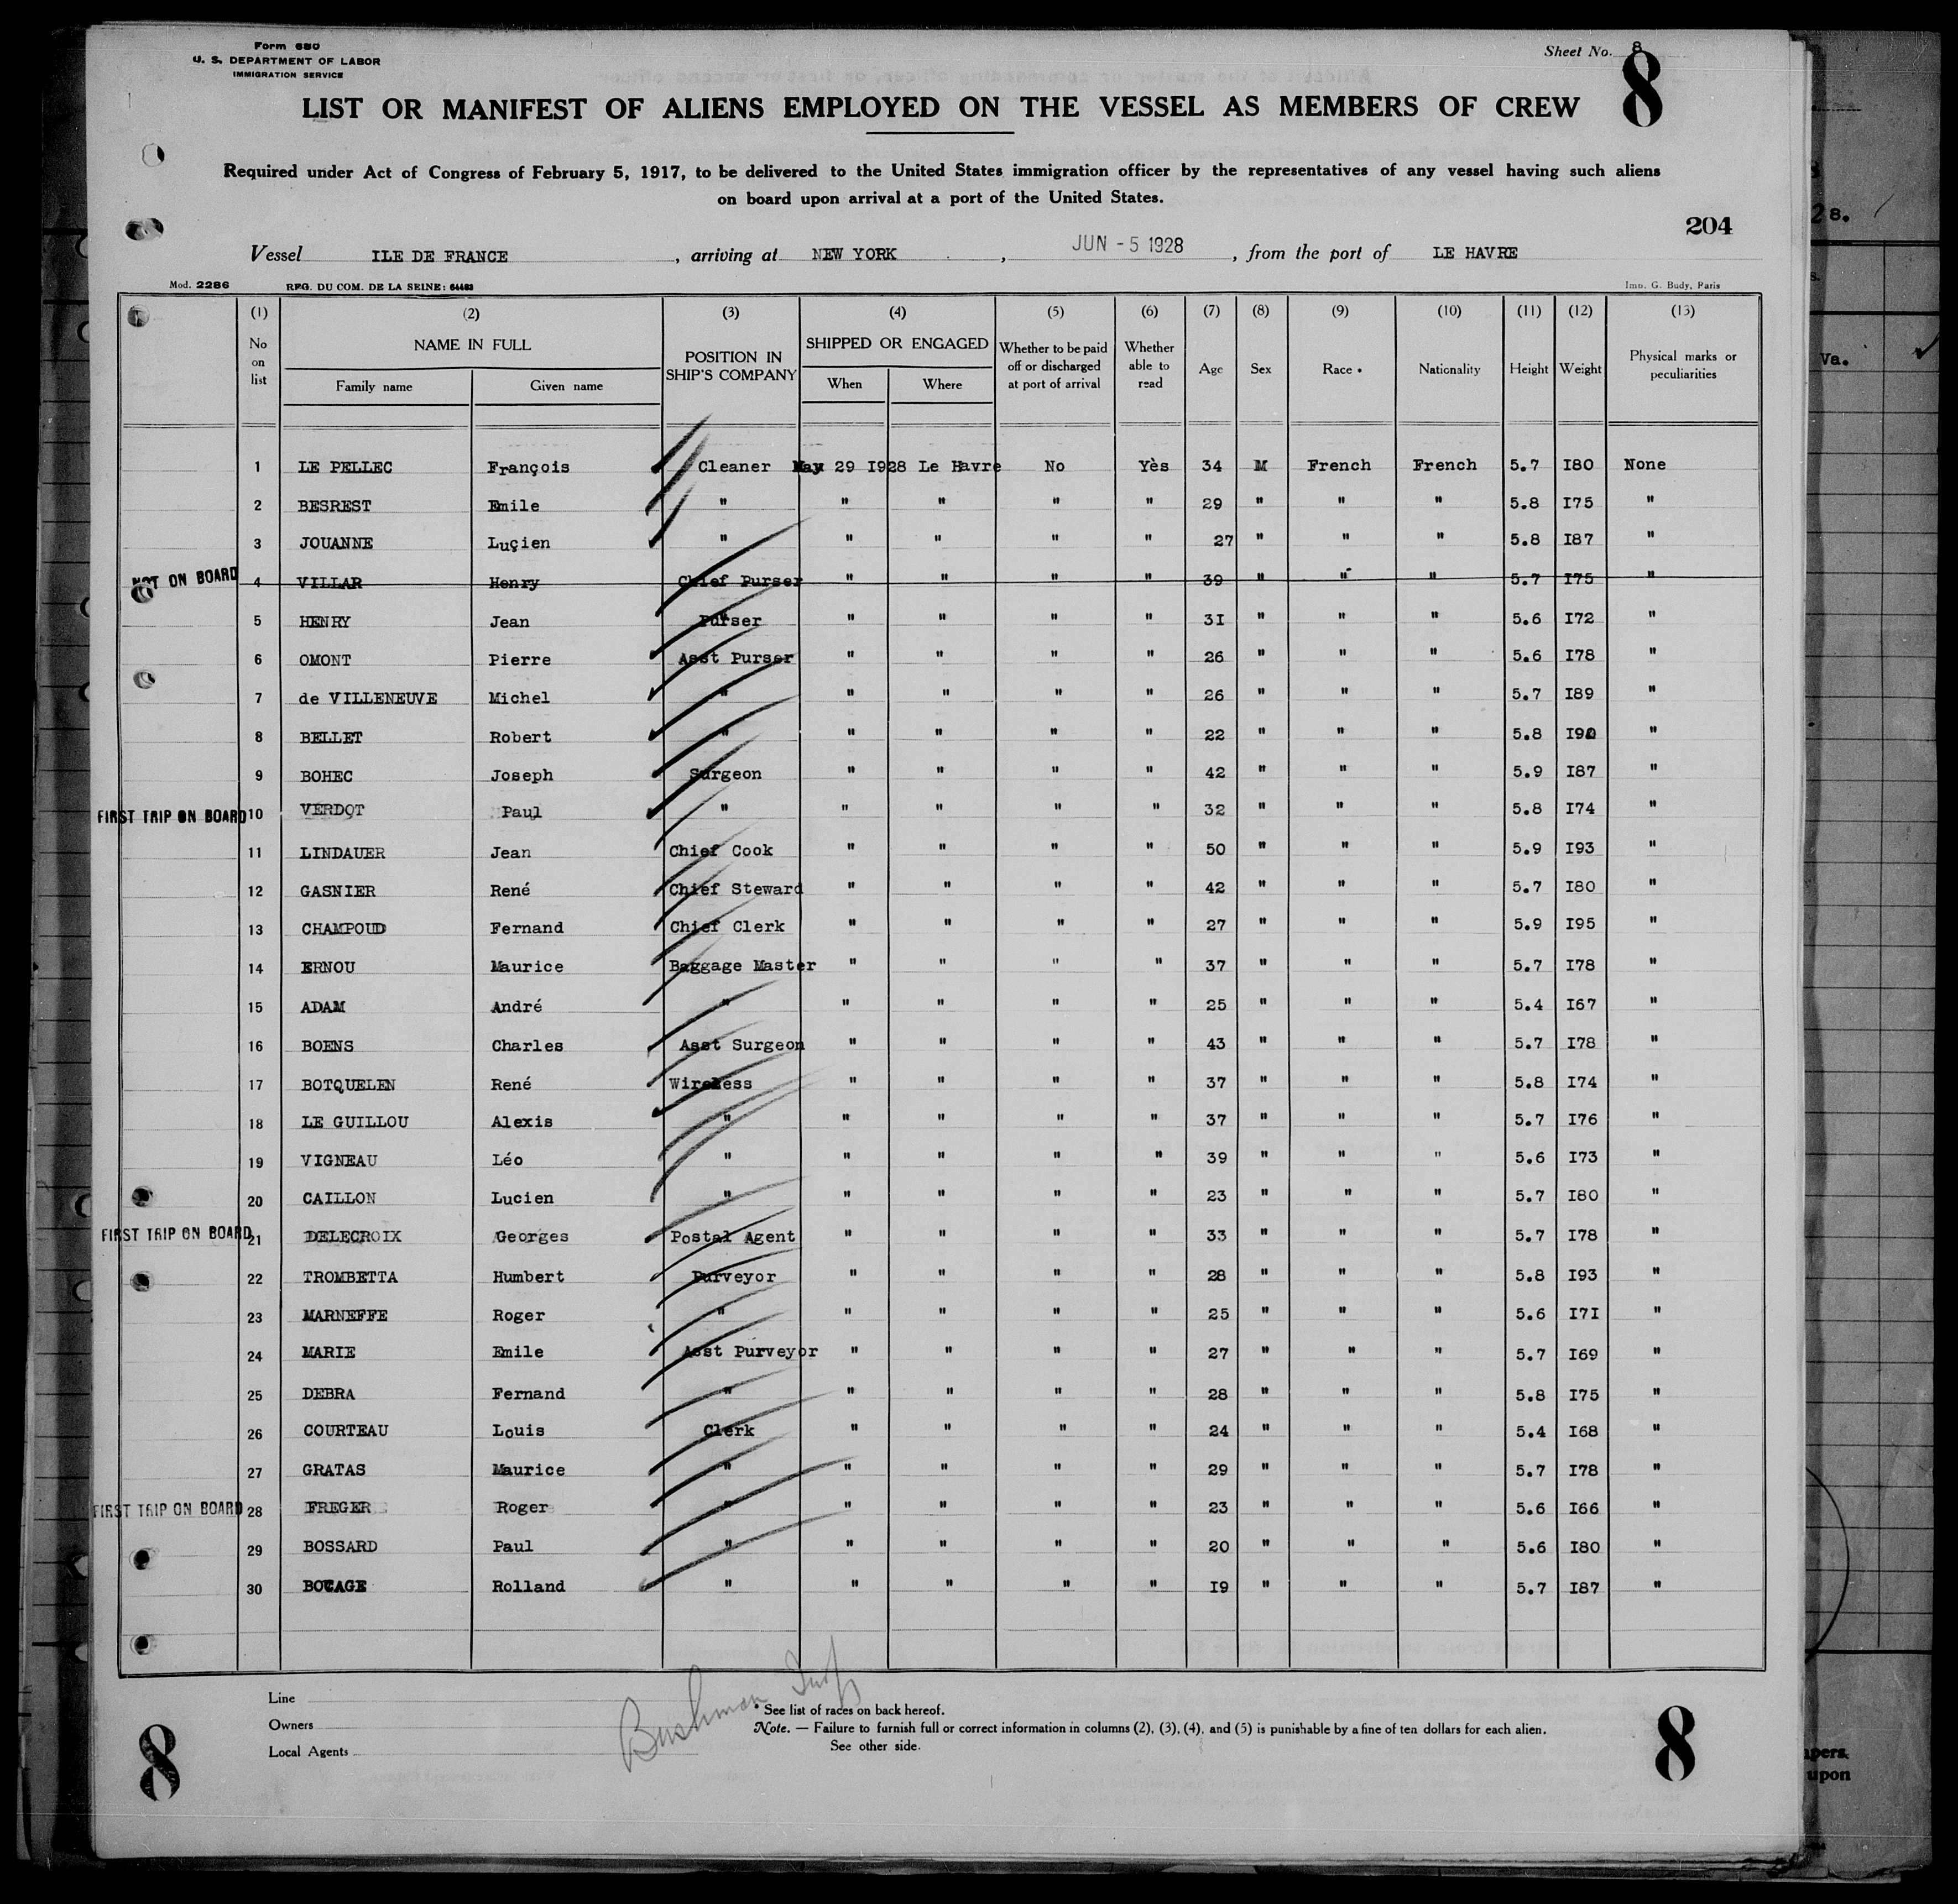 Form 680
U. S. DEPARTMENT OF LABOR
IMMIGRATION SERVICE
Sheet No. 8
8
LIST OR MANIFEST OF ALIENS EMPLOYED ON THE VESSEL AS MEMBERS OF CREW
Required under Act of Congress of February 5, 1917, to be delivered to the United States immigration officer by the representatives of any vessel having such aliens
on board upon arrival at a port of the United States.
204
Vessel ILE DE FRANCE, arriving at NEW YORK, JUN - 5 1928, from the port of LE HAVRE
Mod. 2286 RFG. DU COM. DE LA SEINE: 64483 Imp. G. Budy, Paris
(1) (2) (3) (4) (5) (6) (7) (8) (9) (10) (11) (12) (13)
No on list NAME IN FULL Family name Given name POSITION IN SHIP'S COMPANY SHIPPED OR ENGAGED When Where Whether to be paid off or discharged at port of arrival Whether able to read Age Sex Race • Nationality Height Weight Physical marks or peculiarities
1 LE PELLEC François Cleaner May 29 I928 Le Havre No Yès 34 M French French 5.7 I80 None
2 BESREST Emile " " " " " 29 " " " 5.8 I75 "
3 JOUANNE Luçien " " " " " 27 " " " 5.8 I87 "
NOT ON BOARD 4 VILLAR Henry Chief Purser " " " " 39 " " " 5.7 I75 "
5 HENRY Jean Purser " " " " 3I " " " 5.6 I72 "
6 OMONT Pierre Asst Purser " " " " 26 " " " 5.6 I78 "
7 de VILLENEUVE Michel " " " " " 26 " " " 5.7 I89 "
8 BELLET Robert " " " " " 22 " " " 5.8 I90 "
9 BOHEC Joseph Surgeon " " " " 42 " " " 5.9 I87 "
FIRST TRIP ON BOARD 10 VERDOT Paul " " " " " 32 " " " 5.8 I74 "
11 LINDAUER Jean Chief Cook " " " " 50 " " " 5.9 I93 "
12 GASNIER René Chief Steward " " " " 42 " " " 5.7 I80 "
13 CHAMPOUD Fernand Chief Clerk " " " " 27 " " " 5.9 I95 "
14 ERNOU Maurice Baggage Master " " " " 37 " " " 5.7 I78 "
15 ADAM André " " " " " 25 " " " 5.4 I67 "
16 BOENS Charles Asst Surgeon " " " " 43 " " " 5.7 I78 "
17 BOTQUELEN René Wireless " " " " 37 " " " 5.8 I74 "
18 LE GUILLOU Alexis " " " " " 37 " " " 5.7 I76 "
19 VIGNEAU Léo " " " " " 39 " " " 5.6 I73 "
20 CAILLON Lucien " " " " " 23 " " " 5.7 I80 "
FIRST TRIP ON BOARD 21 DELECROIX Georges Postal Agent " " " " 33 " " " 5.7 I78 "
22 TROMBETTA Humbert Purveyor " " " " 28 " " " 5.8 I93 "
23 MARNEFFE Roger " " " " " 25 " " " 5.6 I7I "
24 MARIE Emile Asst Purveyor " " " " 27 " " " 5.7 I69 "
25 DEBRA Fernand " " " " " 28 " " " 5.8 I75 "
26 COURTEAU Louis Clerk " " " " 24 " " " 5.4 I68 "
27 GRATAS Maurice " " " " " 29 " " " 5.7 I78 "
FIRST TRIP ON BOARD 28 FREGER Roger " " " " " 23 " " " 5.6 I66 "
29 BOSSARD Paul " " " " " 20 " " " 5.6 I80 "
30 BOCAGE Rolland " " " " " I9 " " " 5.7 I87 "
Line
Owners
Local Agents
Bushman
* See list of races on back hereof.
Note. — Failure to furnish full or correct information in columns (2), (3), (4), and (5) is punishable by a fine of ten dollars for each alien.
See other side.
8
8
Va.
upon